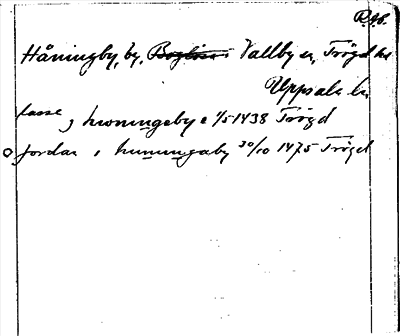 Håningby, by, Vallby sn, Trögd hd
Uppsala län
lasse j hwoningeby c 1/5 1438 Trögd
Jordan i hununghaby 30/10 1475 Trögd